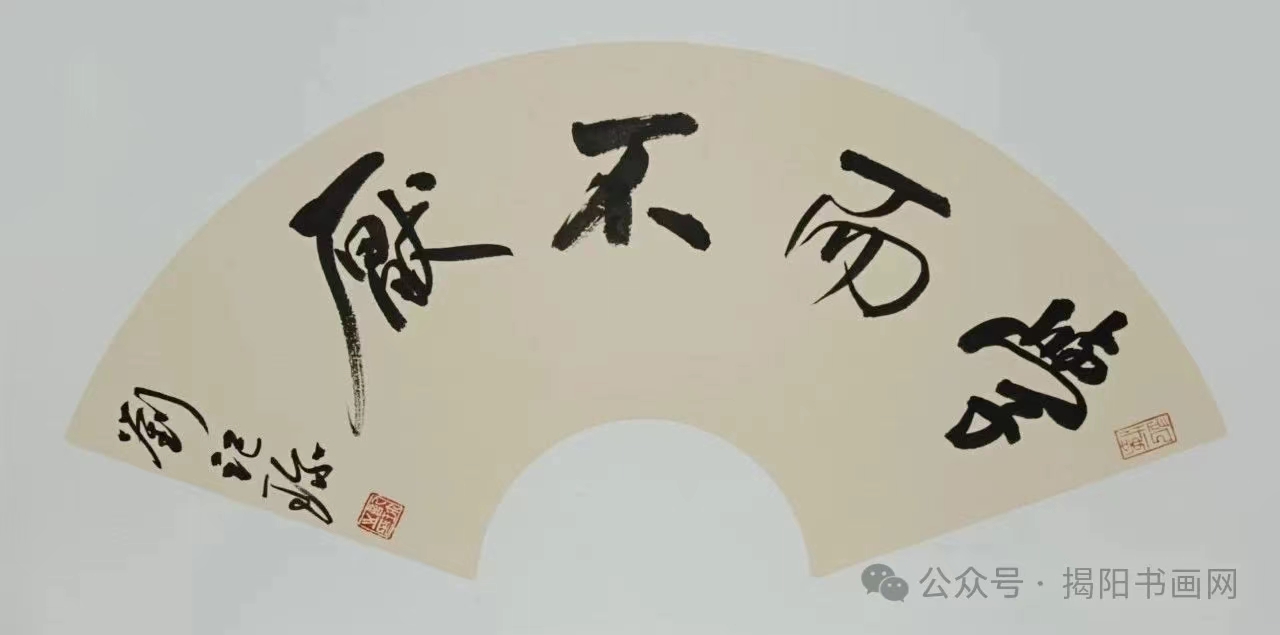 學而不厭
劉記
公众号·揭阳书画网